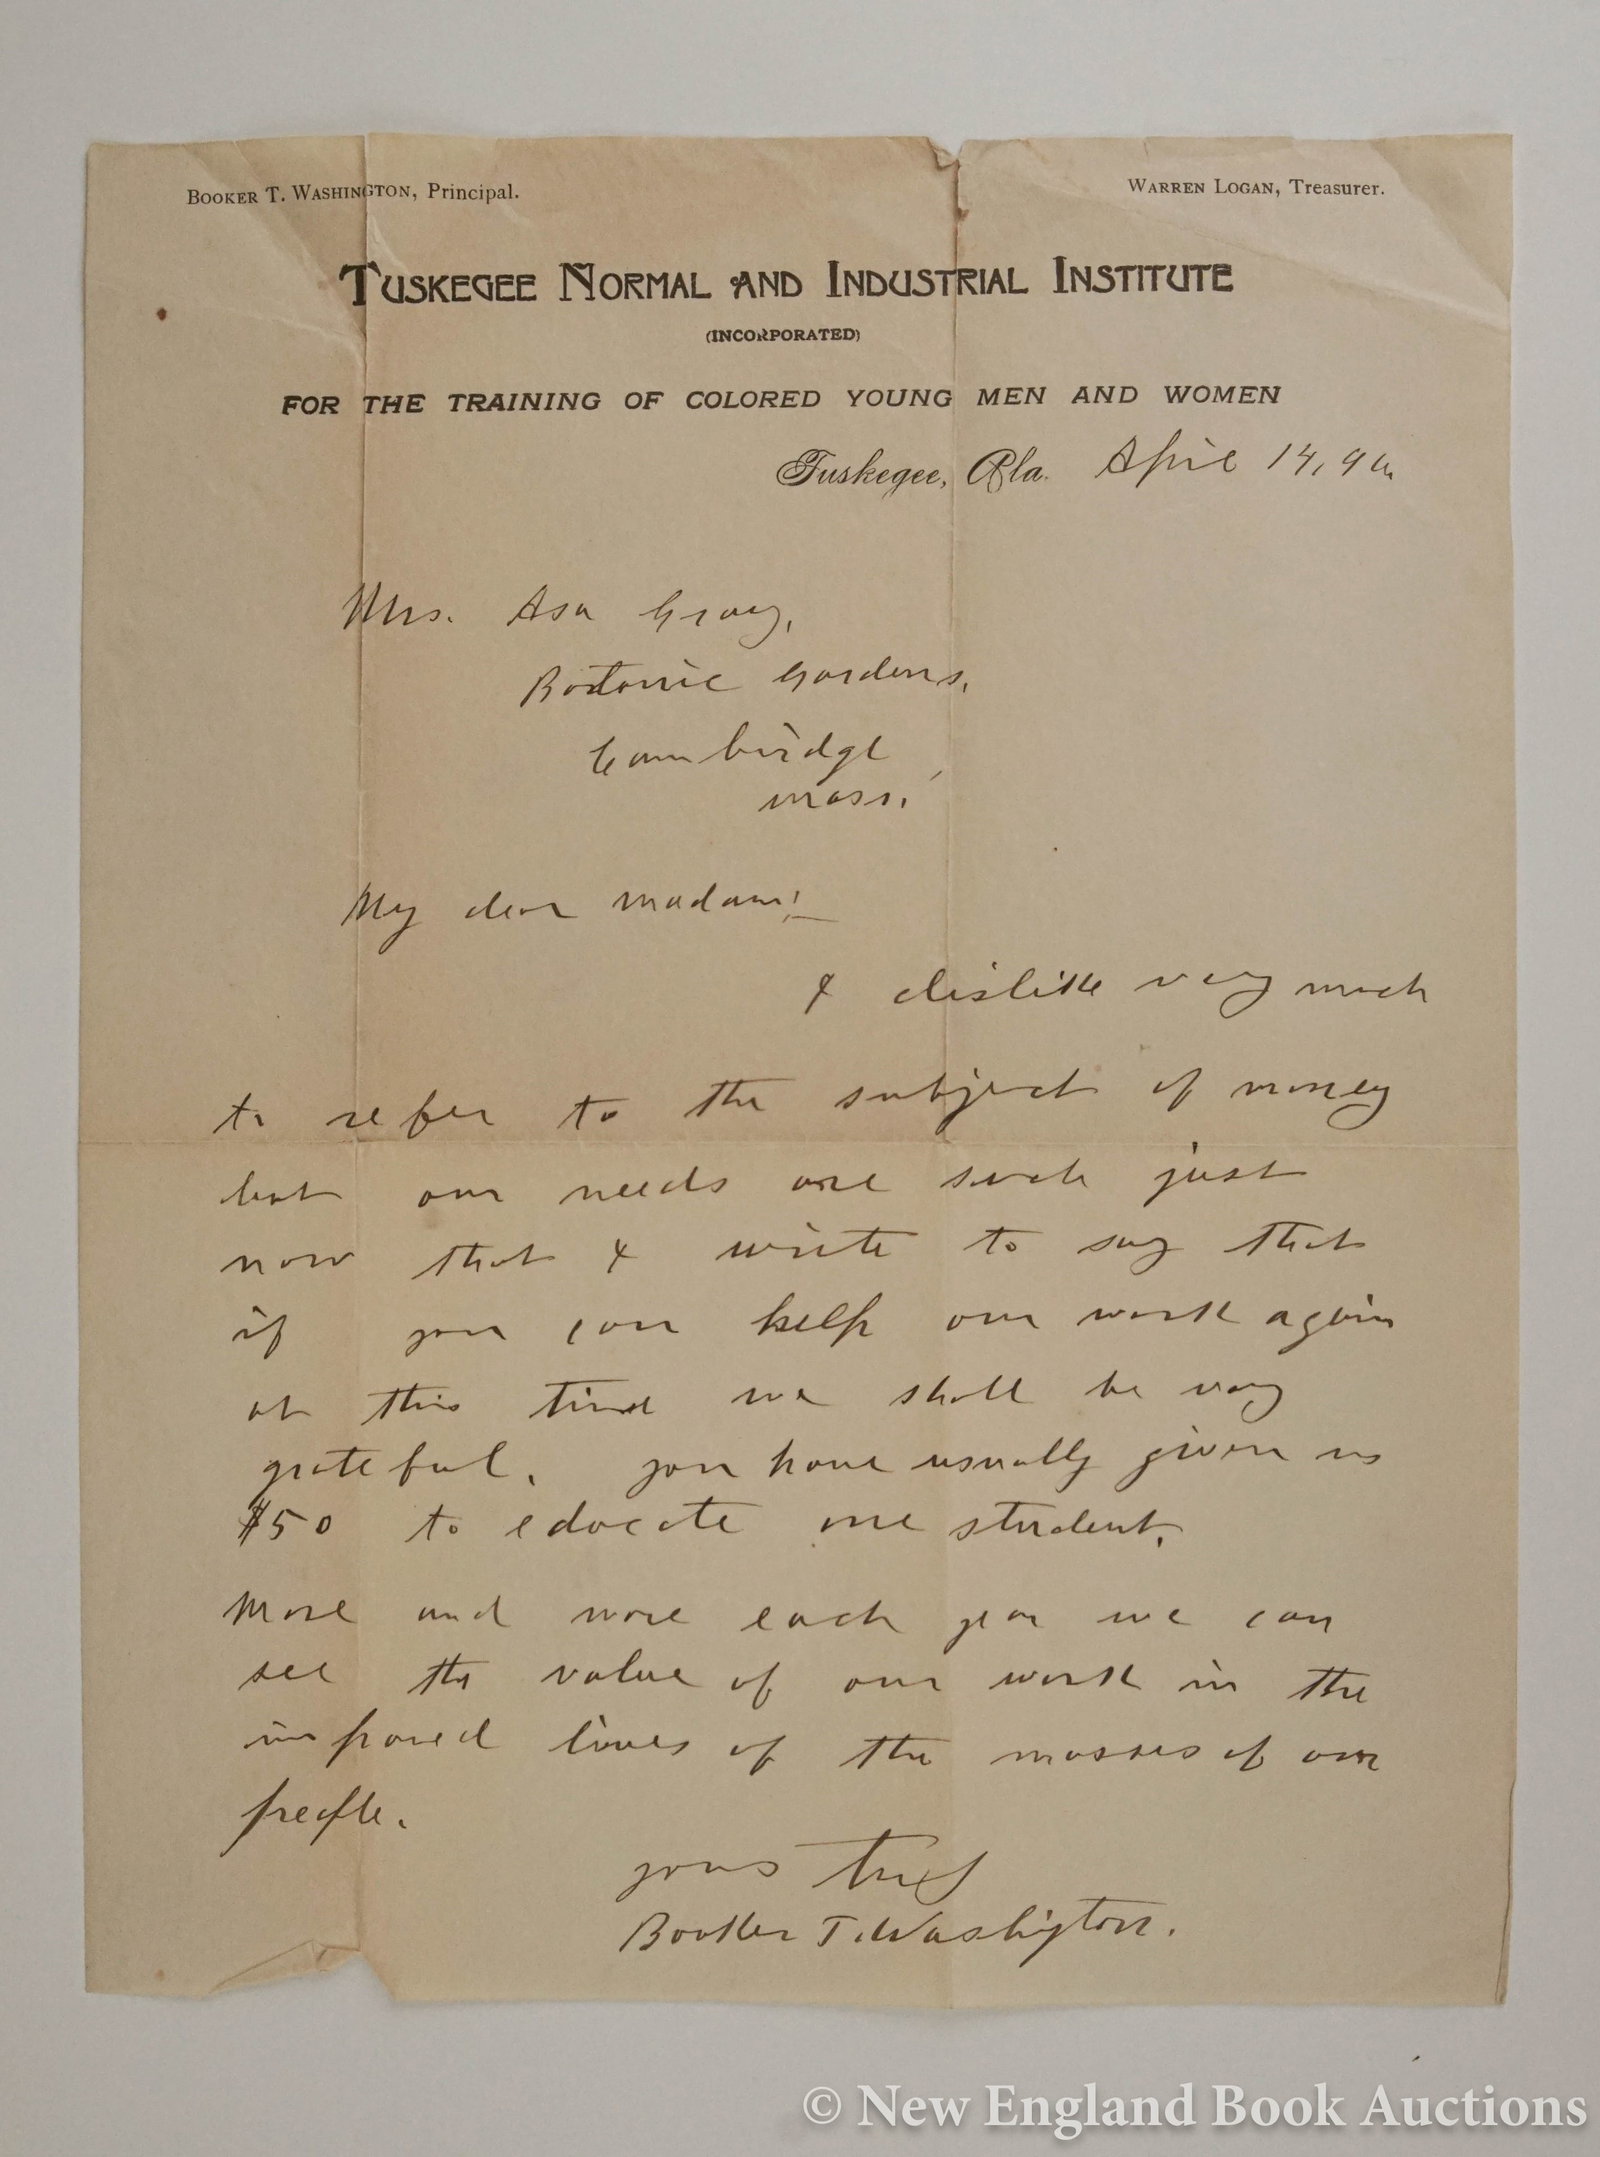 BOOKER T. WASHINGTON, Principal.
WARREN LOGAN, Treasurer.
TUSKEGEE NORMAL AND INDUSTRIAL INSTITUTE
(INCORPORATED)
FOR THE TRAINING OF COLORED YOUNG MEN AND WOMEN
Tuskegee, Ala. April 14, 9
Mrs. Asa Gray,
Botanic Gardens,
Cambridge,
Mass.
My dear madam:
I dislike very much
to refer to the subject of money
but our needs are such just
now that I write to say that
if you can help our work again
at this time we shall be very
grateful. You have usually given us
$50 to educate one student.
More and more each year we can
see the value of our work in the
improved lives of the masses of our
people.
Yours truly
Booker T. Washington.
© New England Book Auctions